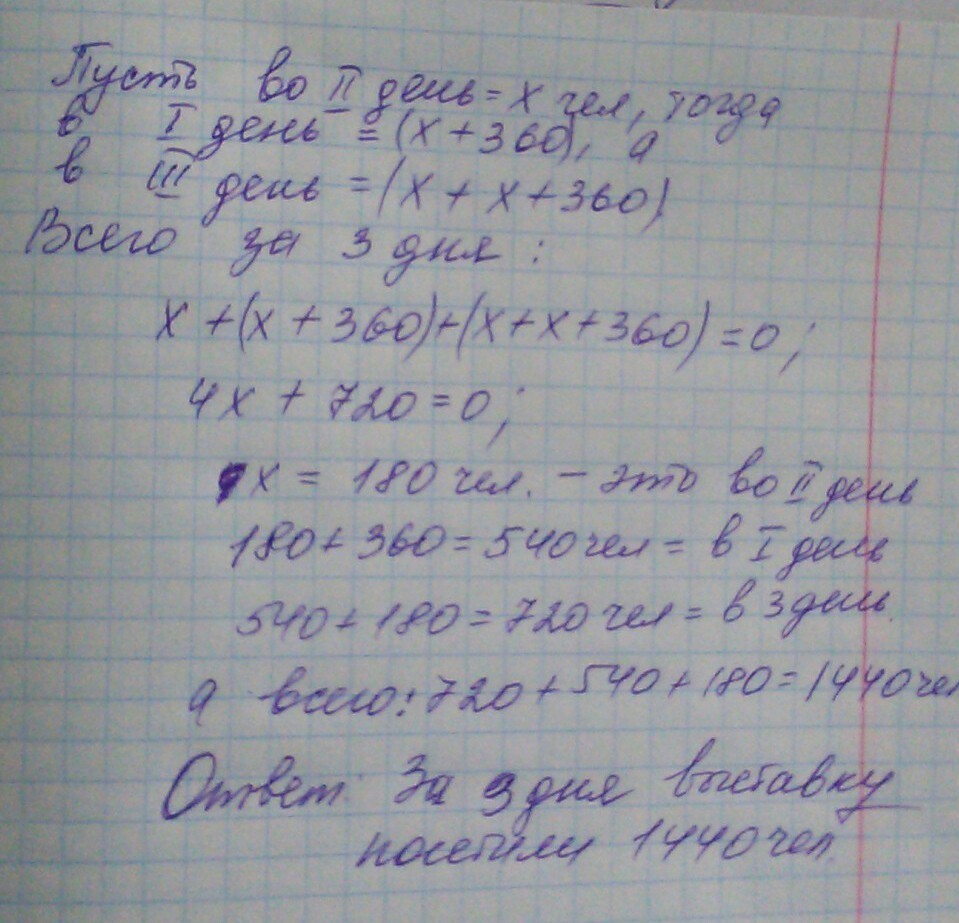 Пусть во II день = x чел, тогда
в I день = (x + 360), а
в III день = (x + x + 360)
Всего за 3 дня :
x + (x + 360) + (x + x + 360) = 0 ;
4x + 720 = 0 ;
x = 180 чел. – это во II день
180 + 360 = 540 чел = в I день
540 + 180 = 720 чел = в 3 день.
а всего: 720 + 540 + 180 = 1440 чел
Ответ: За 3 дня выставку
посетили 1440 чел.